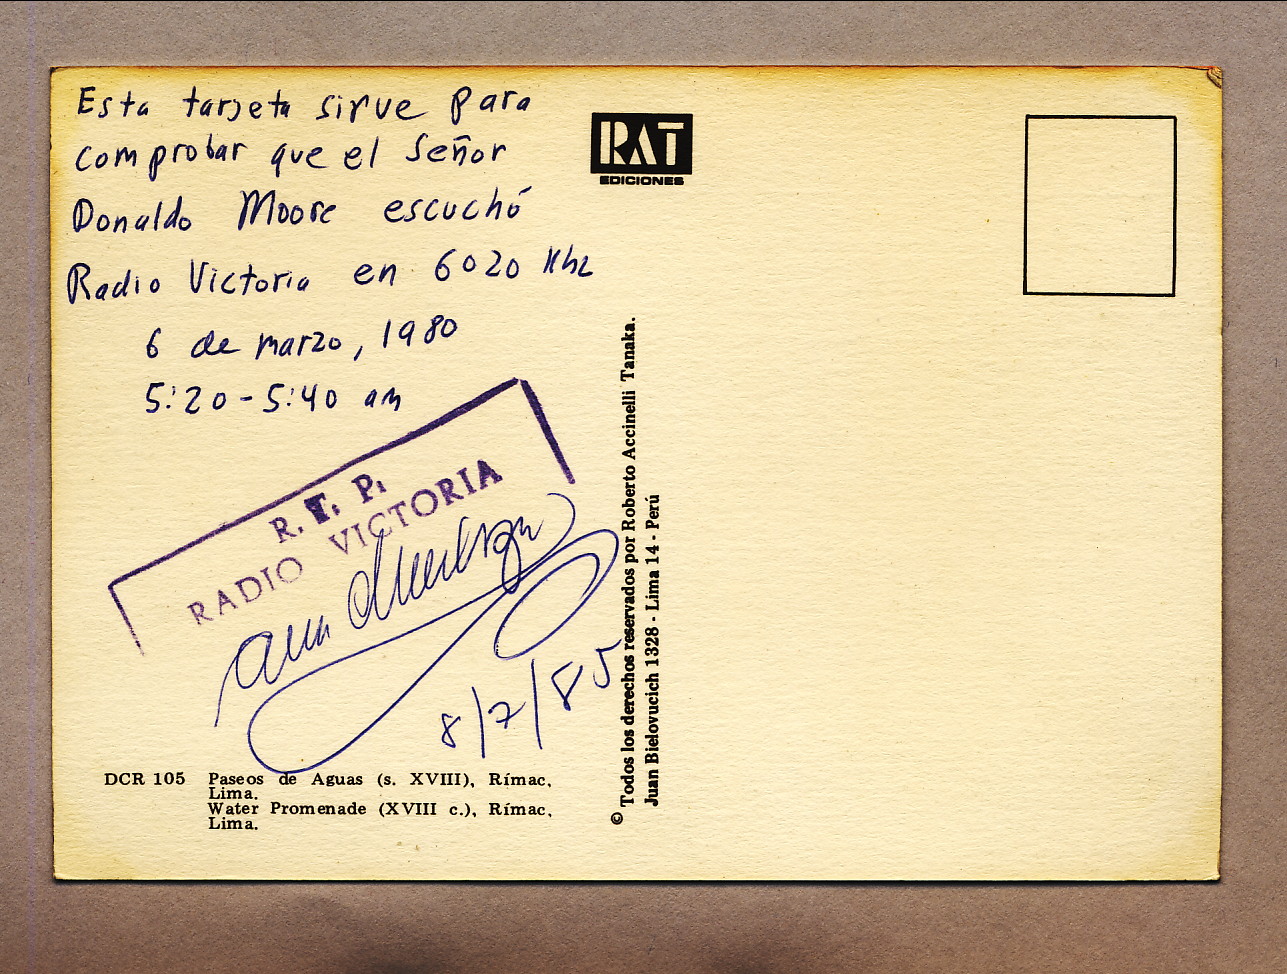 Esta tarjeta sirve para
comprobar que el Señor
Donaldo Moore escuchó
Radio Victoria en 6020 Khz
6 de marzo, 1980
5:20-5:40 am
R. T. P.
RADIO VICTORIA
8/7/85
DCR 105 Paseos de Aguas (s. XVIII), Rímac,
Lima.
Water Promenade (XVIII c.), Rímac,
Lima.
RAT
EDICIONES
© Todos los derechos reservados por Roberto Accinelli Tanaka.
Juan Bielovucich 1328 - Lima 14 - Perú